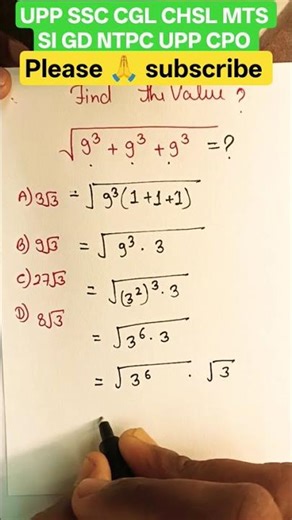 UPP SSC CGL CHSL MTS
SI GD NTPC UPP CPO
Please 🙏 subscribe
Find The Value ?
√(9³ + 9³ + 9³) = ?
A) 3√3 = √(9³(1+1+1))
B) 9√3 = √(9³ · 3)
C) 27√3 = √((3²)³ · 3)
D) 8√3
= √(3⁶ · 3)
= √(3⁶) · √3